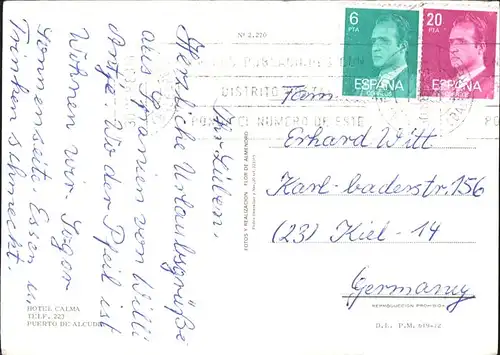 Nº 2.220
6 PTA
ESPAÑA
CORREOS
20 PTA
ESPAÑA
DISTRITO POSTAL
NUMERO DE ESTE
Ihr Lieben,
Herzliche Urlaubsgrüße
aus Spanien von Willi
Antje. Wo der Pfeil ist
Wohnen wir. Sogar
Sonnenseite. Essen u.
Trinken schmeckt.
Fam.
Erhard Witt
Karl-baderstr. 156
(23) Kiel - 14
Germany
FOTOS Y REALIZACION FLOR DE ALMENDRO
REPRODUCCION PROHIBIDA
D. L. P. M. 819-72
HOTEL CALMA
TELF. 223
PUERTO DE ALCUDIA